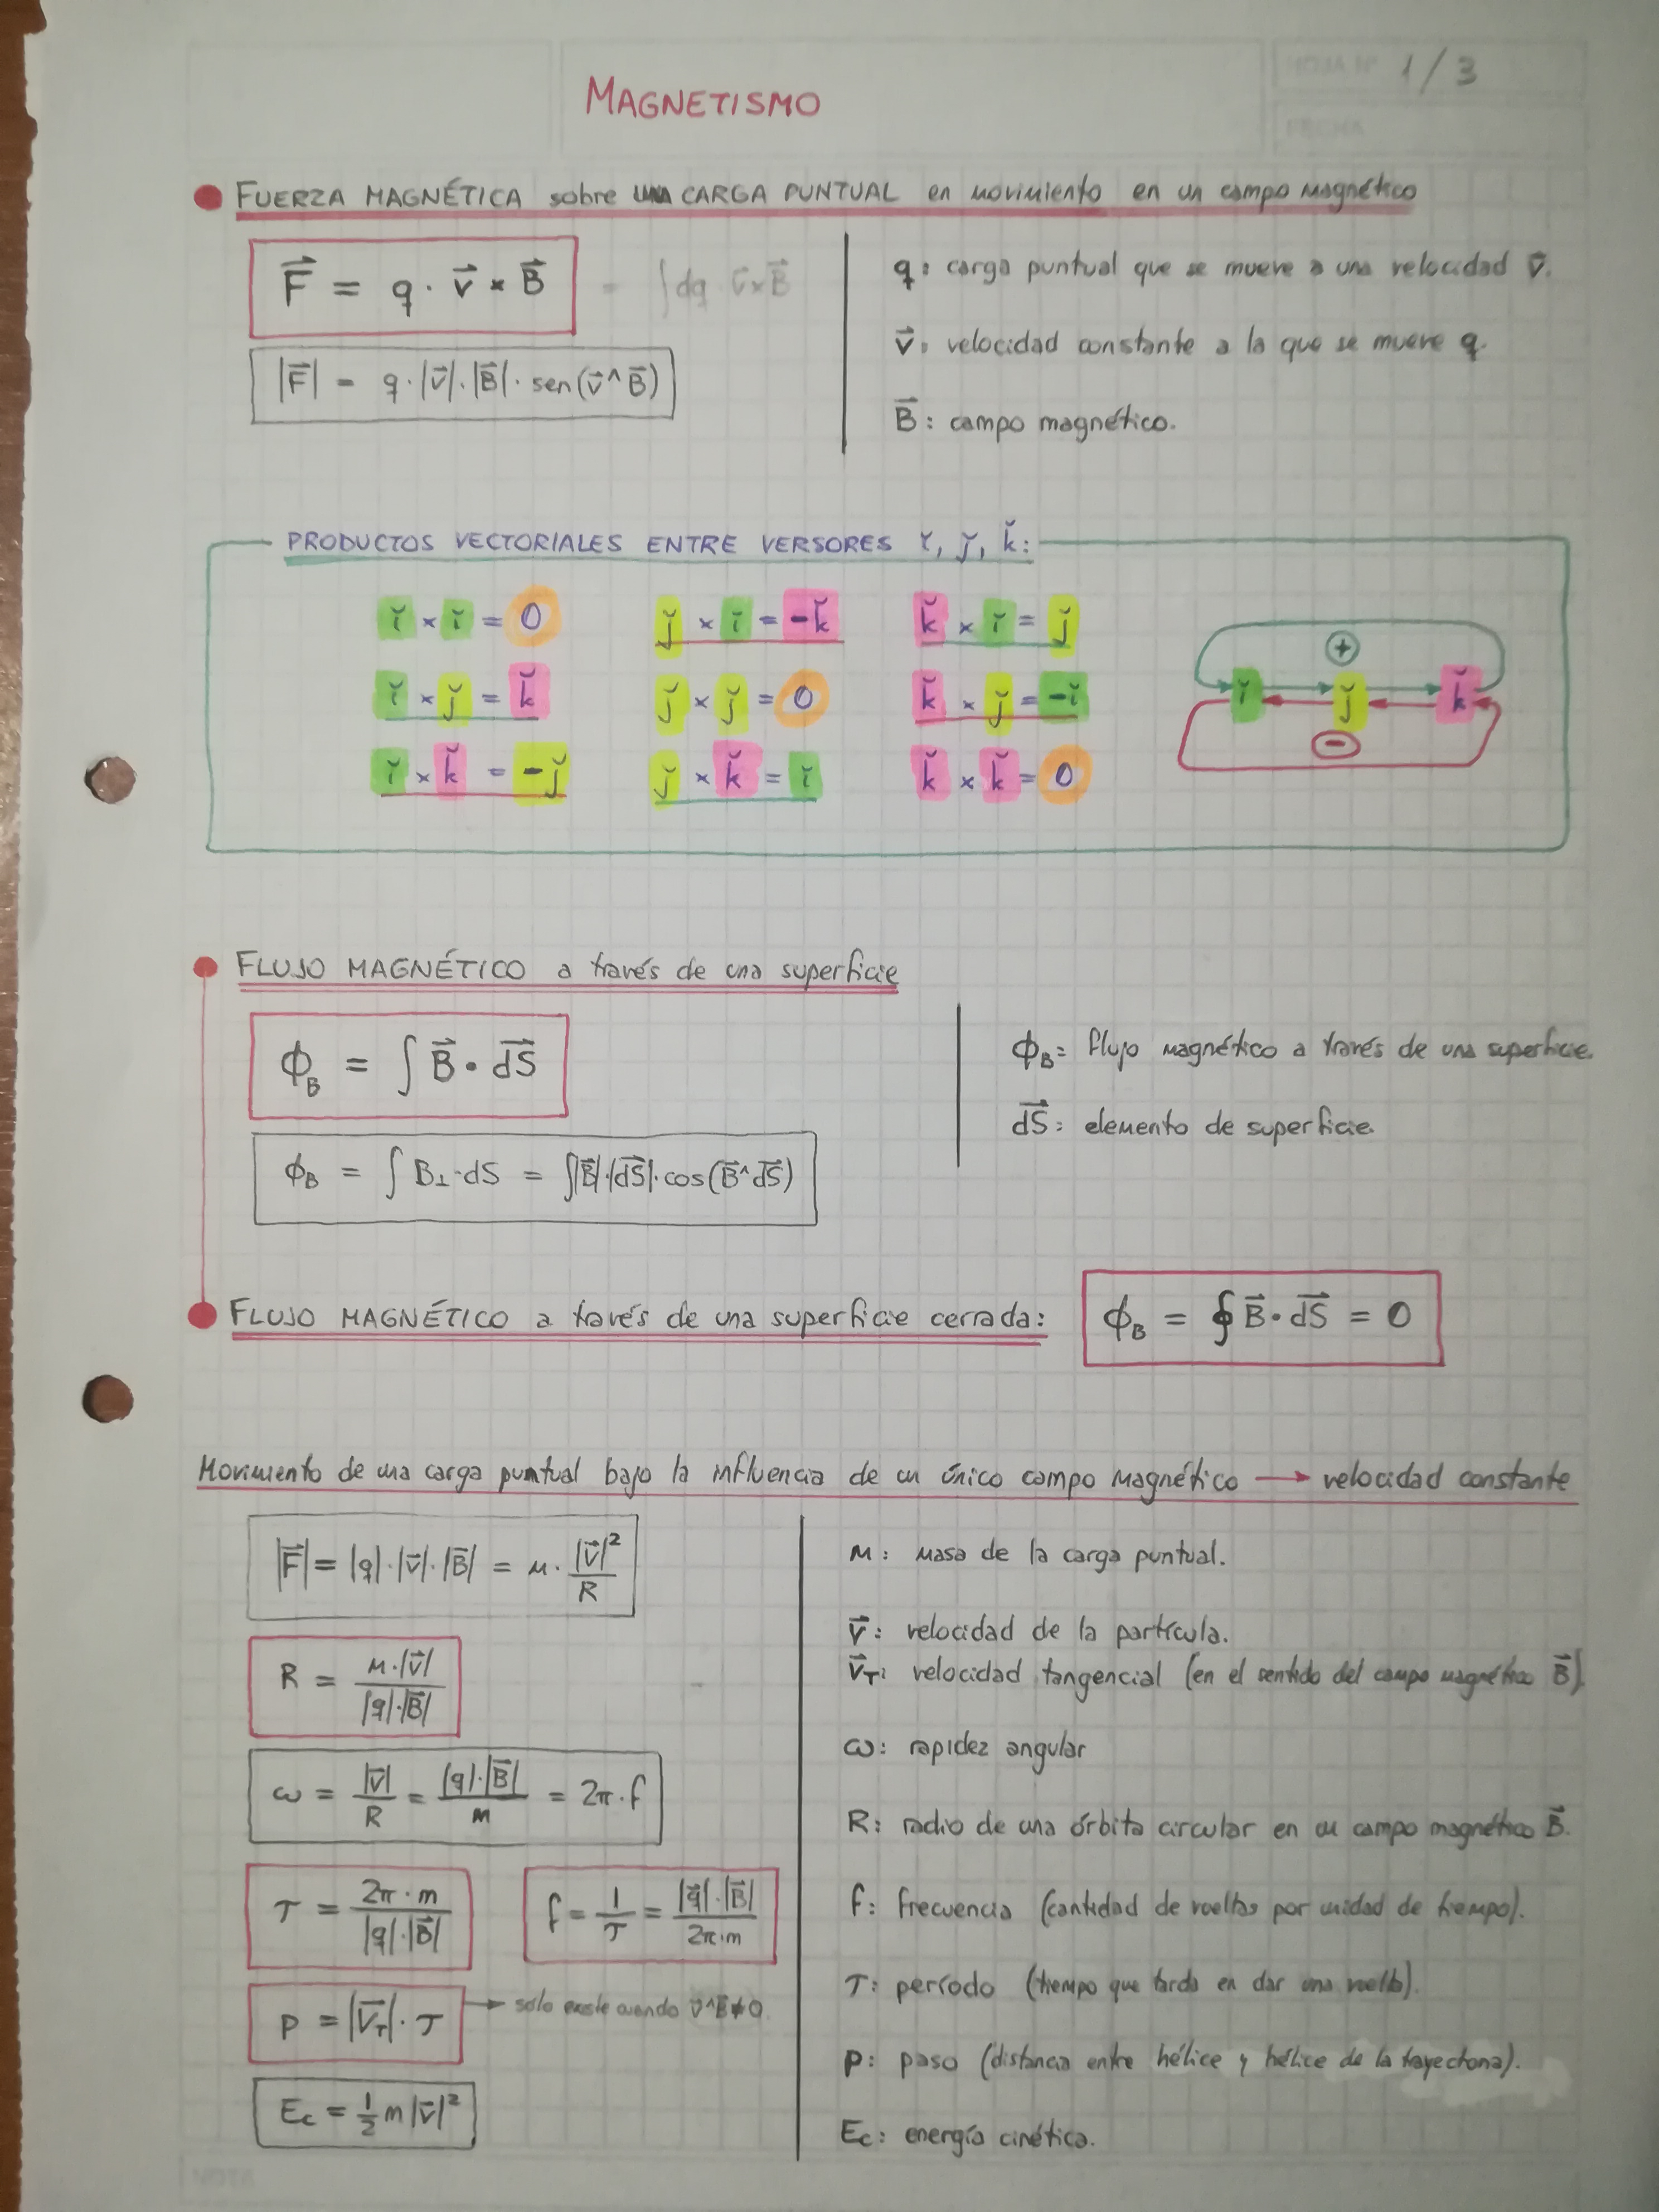 HOJA Nº 1/3
MAGNETISMO
FECHA
FUERZA MAGNÉTICA sobre UNA CARGA PUNTUAL en movimiento en un campo magnético
F⃗ = q · v⃗ × B⃗ = ∫dq · v⃗×B⃗
|F⃗| = q·|v⃗|·|B⃗|· sen(v⃗^B⃗)
q: carga puntual que se mueve a una velocidad v⃗.
v⃗: velocidad constante a la que se mueve q.
B⃗: campo magnético.
PRODUCTOS VECTORIALES ENTRE VERSORES ĭ, ǰ, k̆:
ĭ × ĭ = 0 ǰ × ĭ = -k̆ k̆ × ĭ = ǰ
ĭ × ǰ = k̆ ǰ × ǰ = 0 k̆ × ǰ = -ĭ
ĭ × k̆ = -ǰ ǰ × k̆ = ĭ k̆ × k̆ = 0
+
ĭ ǰ k̆
-
FLUJO MAGNÉTICO a través de una superficie
ϕB = ∫ B⃗ • dS⃗
ϕB = ∫ B⊥·dS = ∫|B⃗|·|dS⃗|·cos(B⃗^dS⃗)
ϕB= flujo magnético a través de una superficie.
dS⃗: elemento de superficie.
FLUJO MAGNÉTICO a través de una superficie cerrada: ϕB = ∮ B⃗ • dS⃗ = 0
Movimiento de una carga puntual bajo la influencia de un único campo magnético → velocidad constante
|F⃗| = |q|·|v⃗|·|B⃗| = m · |v⃗|²/R
R = m·|v⃗| / |q|·|B⃗|
ω = |v⃗|/R = |q|·|B⃗|/m = 2π·f
T = 2π·m / |q|·|B⃗|
f = 1/T = |q⃗|·|B⃗| / 2π·m
P = |v⃗T|· T → sólo existe cuando v⃗^B⃗≠0
Ec = ½ m |v⃗|²
m: masa de la carga puntual.
v⃗: velocidad de la partícula.
v⃗T: velocidad tangencial (en el sentido del campo magnético B⃗).
ω: rapidez angular
R: radio de una órbita circular en un campo magnético B⃗.
f: frecuencia (cantidad de vueltas por unidad de tiempo).
T: período (tiempo que tarda en dar una vuelta).
P: paso (distancia entre hélice y hélice de la trayectoria).
Ec: energía cinética.
NOTA